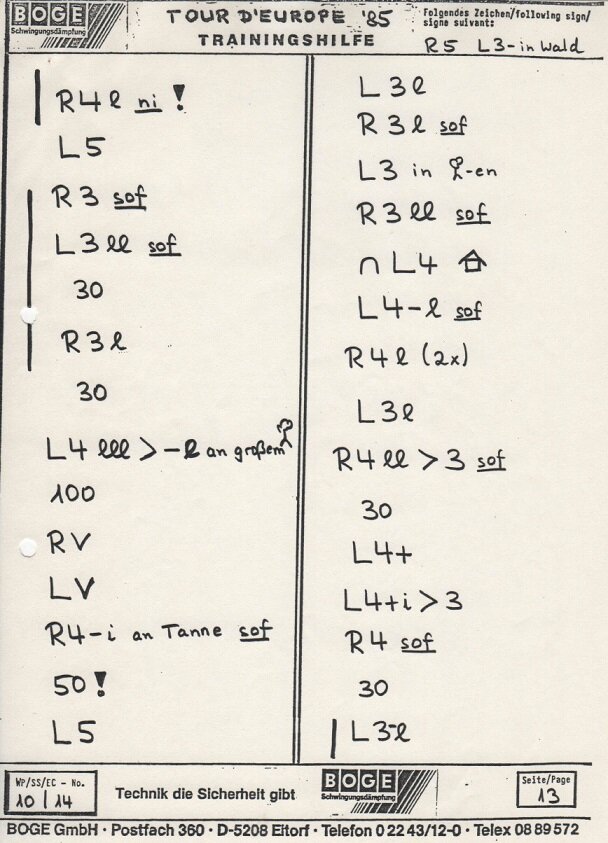 BOGE
Schwingungsdämpfung
TOUR D'EUROPE '85
TRAININGSHILFE
Folgendes Zeichen/following sign/
signe suivant:
R5 L3-in Wald
R4l ni !
L5
R3 sof
L3ll sof
30
R3l
30
L4lll > -l an großem
100
RV
LV
R4-i an Tanne sof
50!
L5
L3l
R3l sof
L3 in -en
R3ll sof
∩ L4
L4-l sof
R4l (2x)
L3l
R4ll > 3 sof
30
L4+
L4+i > 3
R4 sof
30
L3-l
WP/SS/EC - No.
10/14
Technik die Sicherheit gibt
BOGE
Schwingungsdämpfung
Seite/Page
13
BOGE GmbH · Postfach 360 · D-5208 Eitorf · Telefon 0 22 43/12-0 · Telex 08 89 572